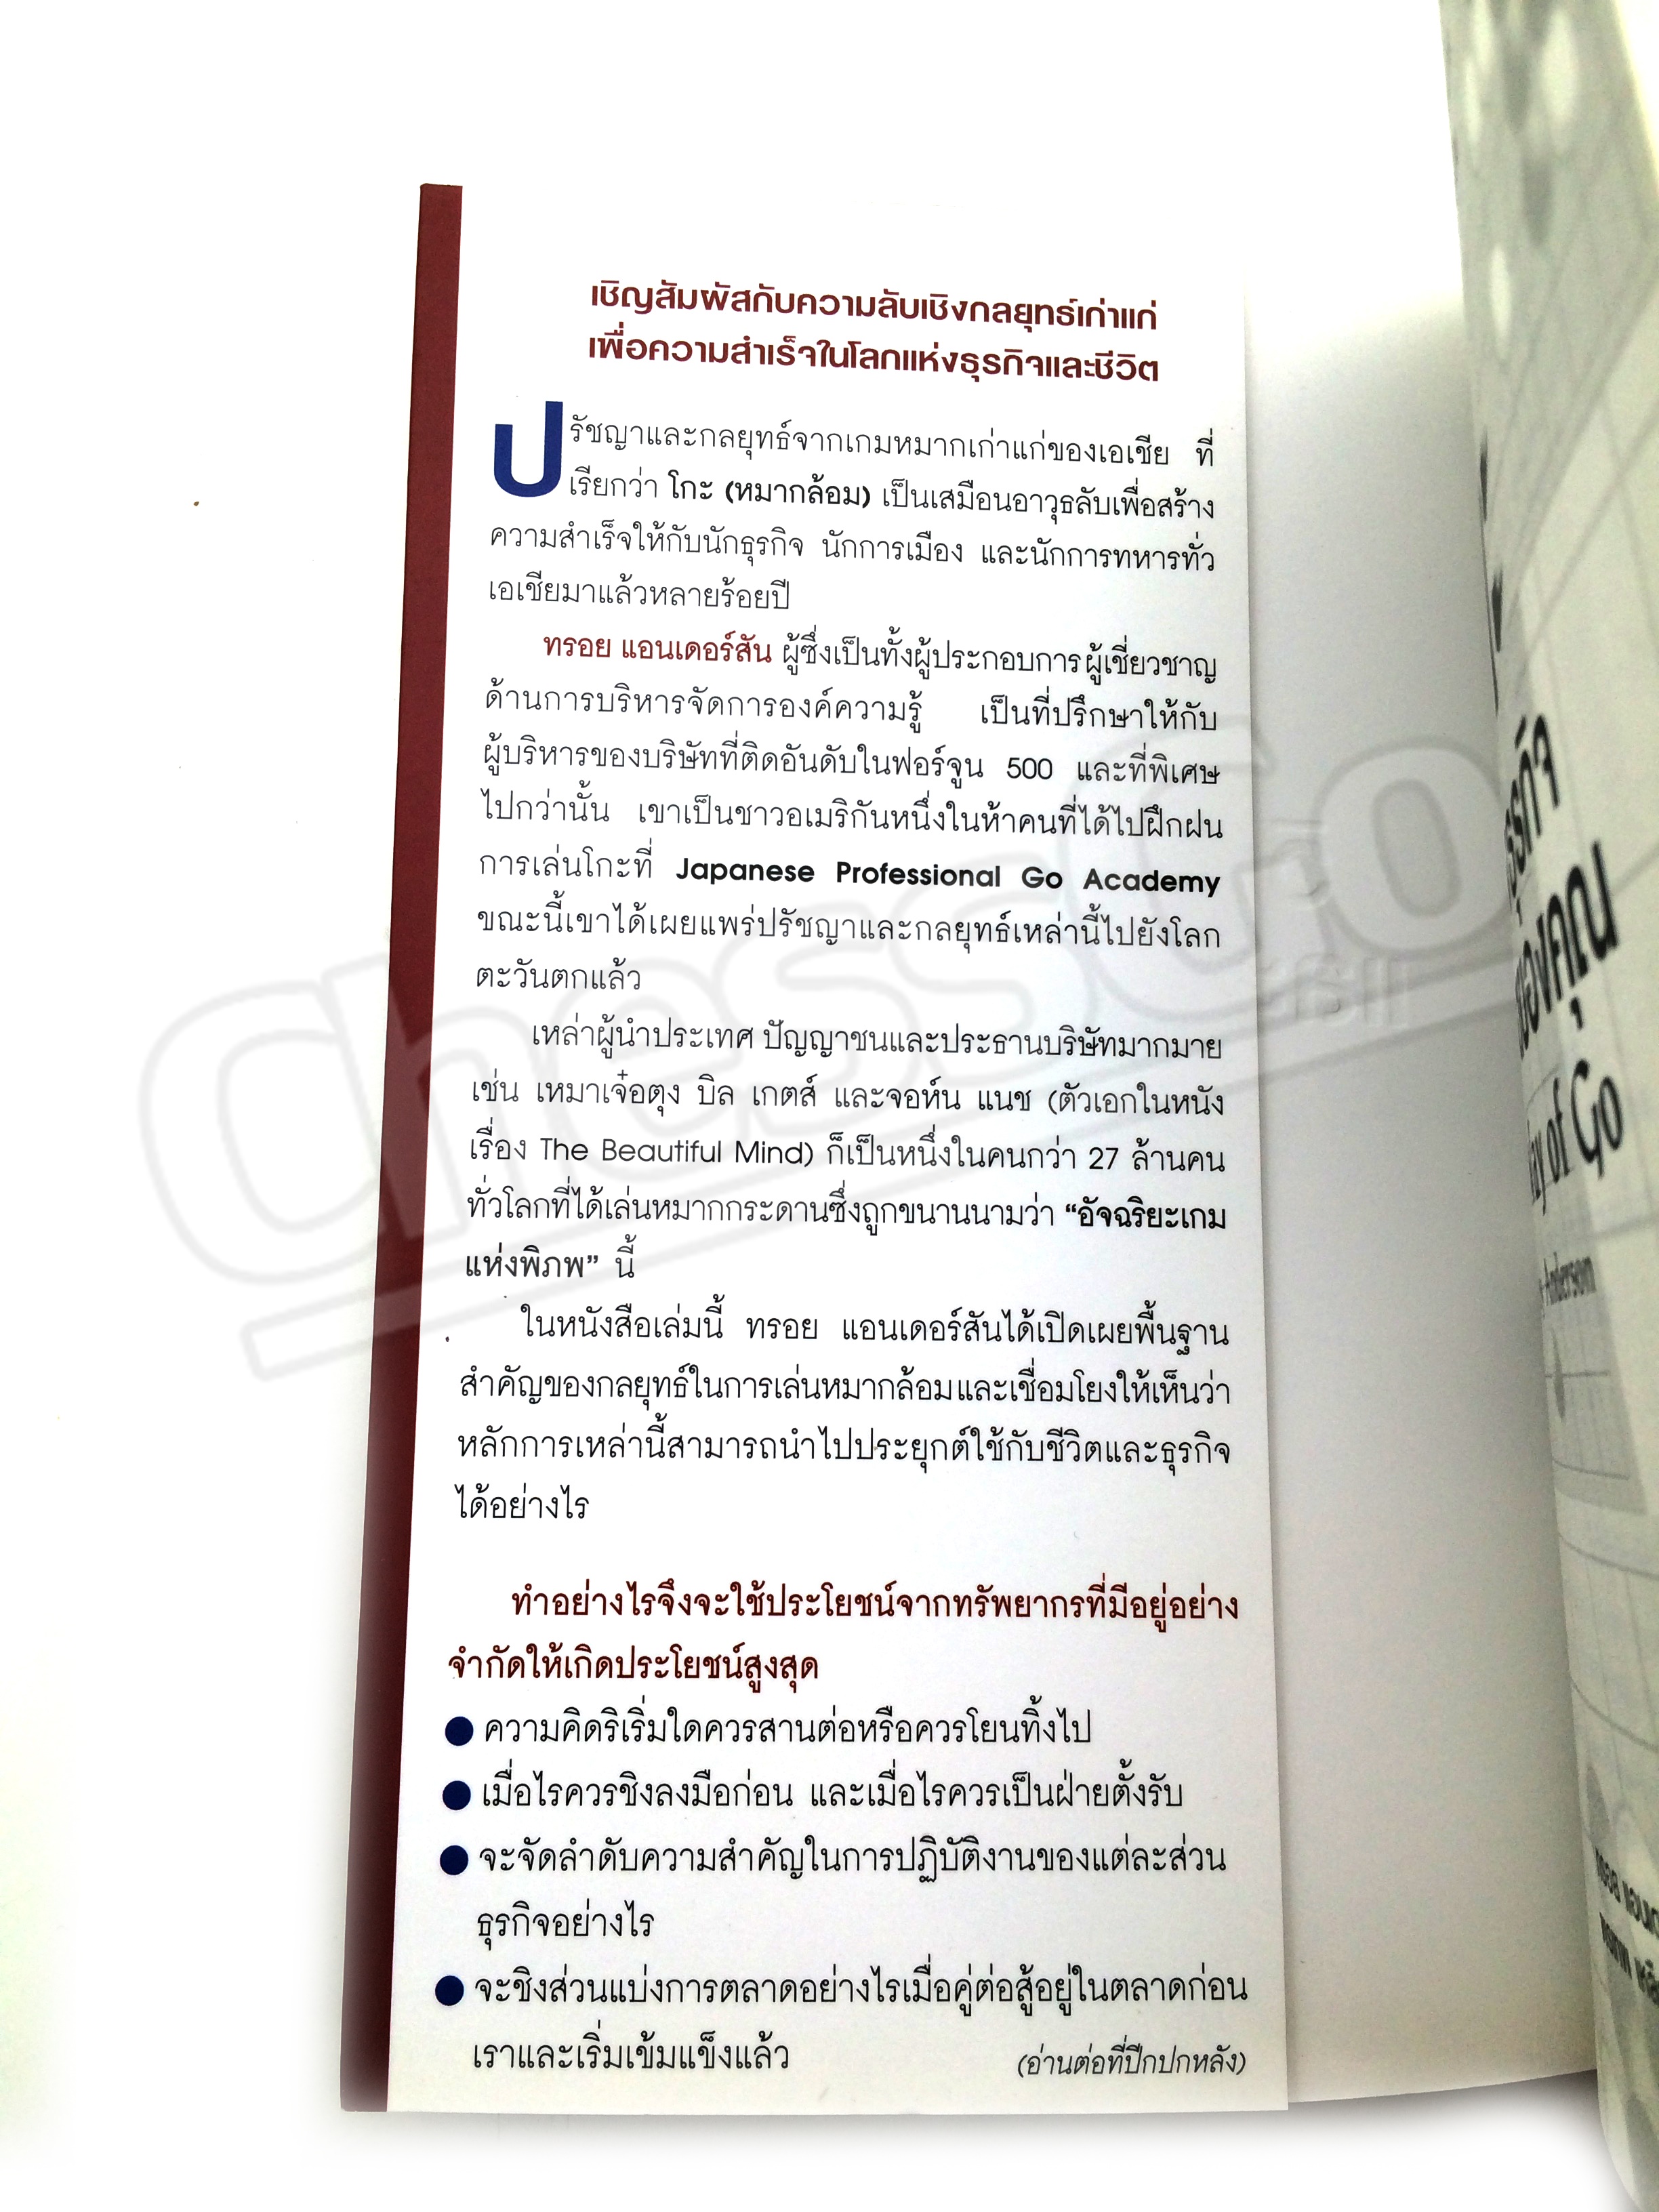 เชิญสัมผัสกับความลับเชิงกลยุทธ์เก่าแก่
เพื่อความสำเร็จในโลกแห่งธุรกิจและชีวิต
ปรัชญาและกลยุทธ์จากเกมหมากเก่าแก่ของเอเชีย ที่
เรียกว่า โกะ (หมากล้อม) เป็นเสมือนอาวุธลับเพื่อสร้าง
ความสำเร็จให้กับนักธุรกิจ นักการเมือง และนักการทหารทั่ว
เอเชียมาแล้วหลายร้อยปี
ทรอย แอนเดอร์สัน ผู้ซึ่งเป็นทั้งผู้ประกอบการ ผู้เชี่ยวชาญ
ด้านการบริหารจัดการองค์ความรู้ เป็นที่ปรึกษาให้กับ
ผู้บริหารของบริษัทที่ติดอันดับในฟอร์จูน 500 และที่พิเศษ
ไปกว่านั้น เขาเป็นชาวอเมริกันหนึ่งในห้าคนที่ได้ไปฝึกฝน
การเล่นโกะที่ Japanese Professional Go Academy
ขณะนี้เขาได้เผยแพร่ปรัชญาและกลยุทธ์เหล่านี้ไปยังโลก
ตะวันตกแล้ว
เหล่าผู้นำประเทศ ปัญญาชนและประธานบริษัทมากมาย
เช่น เหมาเจ๋อตุง บิล เกตส์ และจอห์น แนช (ตัวเอกในหนัง
เรื่อง The Beautiful Mind) ก็เป็นหนึ่งในคนกว่า 27 ล้านคน
ทั่วโลกที่ได้เล่นหมากกระดานซึ่งถูกขนานนามว่า “อัจฉริยะเกม
แห่งพิภพ” นี้
ในหนังสือเล่มนี้ ทรอย แอนเดอร์สันได้เปิดเผยพื้นฐาน
สำคัญของกลยุทธ์ในการเล่นหมากล้อมและเชื่อมโยงให้เห็นว่า
หลักการเหล่านี้สามารถนำไปประยุกต์ใช้กับชีวิตและธุรกิจ
ได้อย่างไร
ทำอย่างไรจึงจะใช้ประโยชน์จากทรัพยากรที่มีอยู่อย่าง
จำกัดให้เกิดประโยชน์สูงสุด
● ความคิดริเริ่มใดควรสานต่อหรือควรโยนทิ้งไป
● เมื่อไรควรชิงลงมือก่อน และเมื่อไรควรเป็นฝ่ายตั้งรับ
● จะจัดลำดับความสำคัญในการปฏิบัติงานของแต่ละส่วน
ธุรกิจอย่างไร
● จะชิงส่วนแบ่งการตลาดอย่างไรเมื่อคู่ต่อสู้อยู่ในตลาดก่อน
เราและเริ่มเข้มแข็งแล้ว (อ่านต่อที่ปีกปกหลัง)
ChessGo
ธุรกิจ
ของคุณ
of Go
Anderson